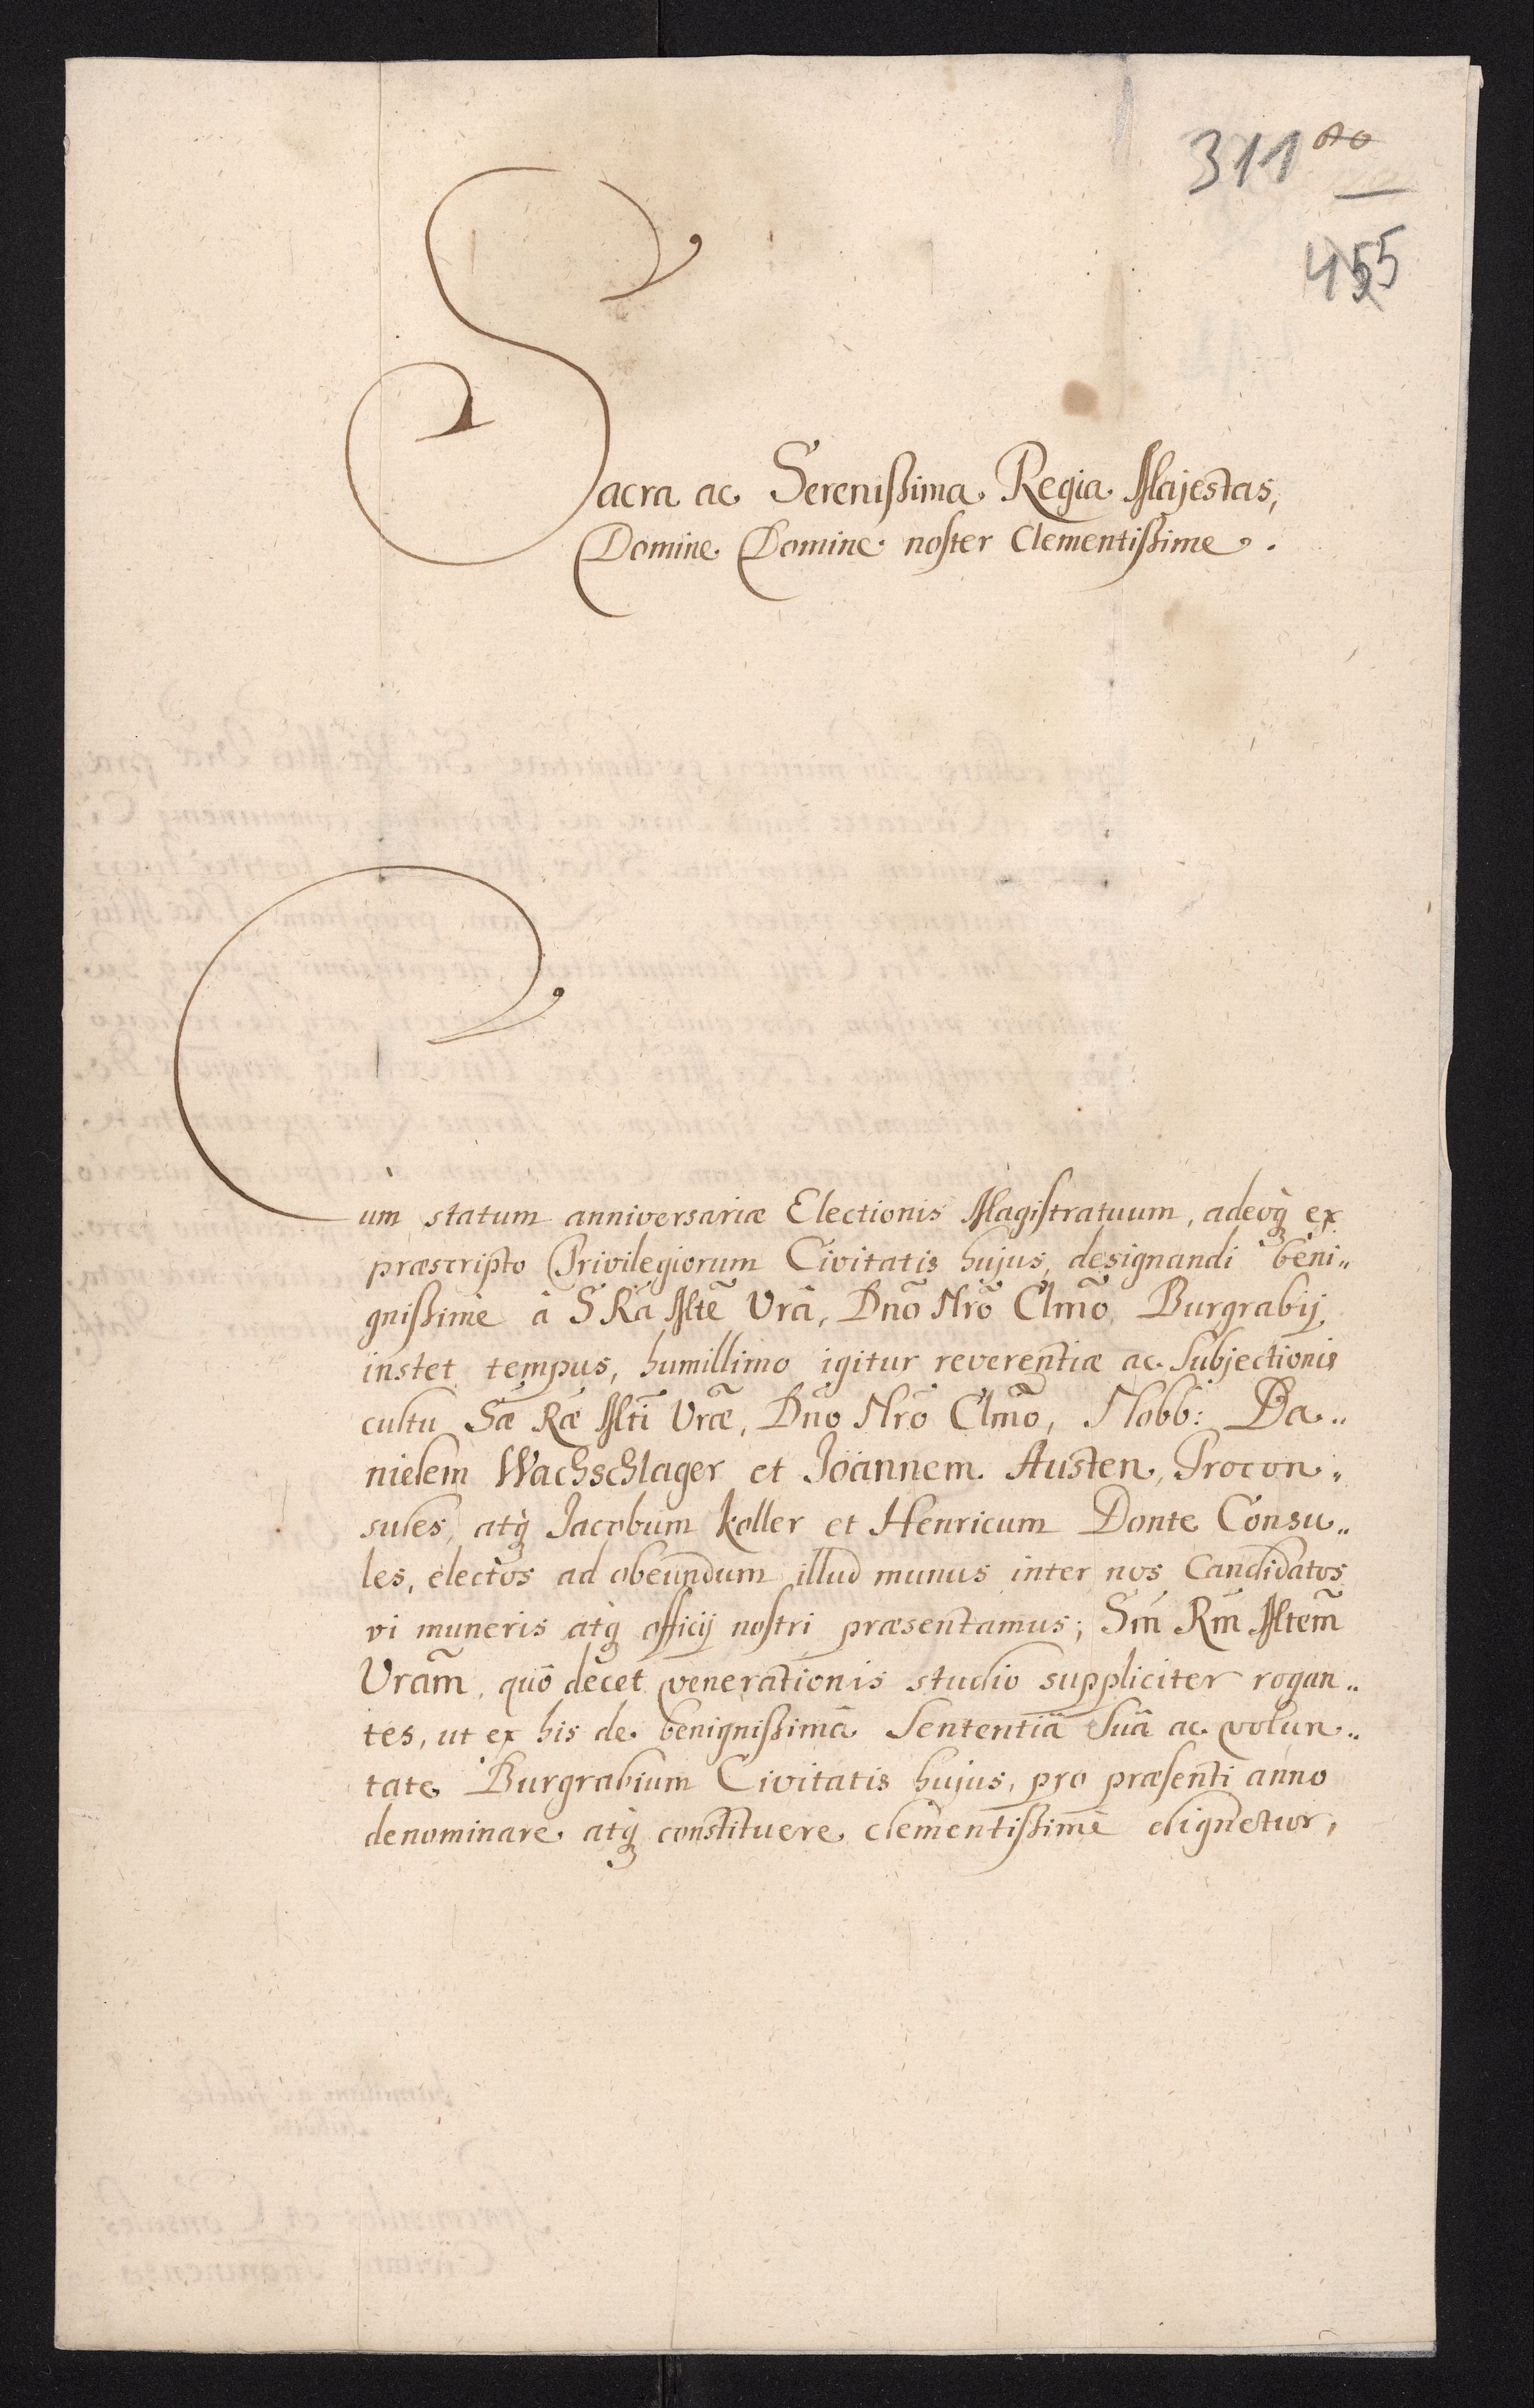 311 80
455
Sacra ac Serenißima Regia Majestas,
Domine Domine noster Clementißime.
Cùm statum anniversariæ Electionis Magistratuum, adeoq̀ ex
præscripto Privilegiorum Civitatis hujus, designandi beni„
gnißimè à S Râ Mtē Vrâ, Dn̄o Nr̄o Clm̄o, Burgrabij
instet tempus, humillimo igitur reverentiæ ac Subjectionis
cultu Sǣ Rǣ Mti̅ Vrǣ, Dn̄o Nr̄o Clm̄o, Nobb: Da„
nielem Wachschlager et Joannem Austen, Procon„
sules, atq̀ Jacobum Koller et Henricum Donte Consu„
les, electos ad obeundum illud munus inter nos Candidatos
vi muneris atq̀ officij nostri præsentamus; Sm̄ Rm̄ Mtem̄
Vram̄, quô decet venerationis studio suppliciter rogan„
tes, ut ex his de benignißimâ Sententiâ Suâ ac volun„
tate Burgrabium Civitatis hujus, pro præsenti anno
denominare atq̀ constituere clementißimè dignetur,